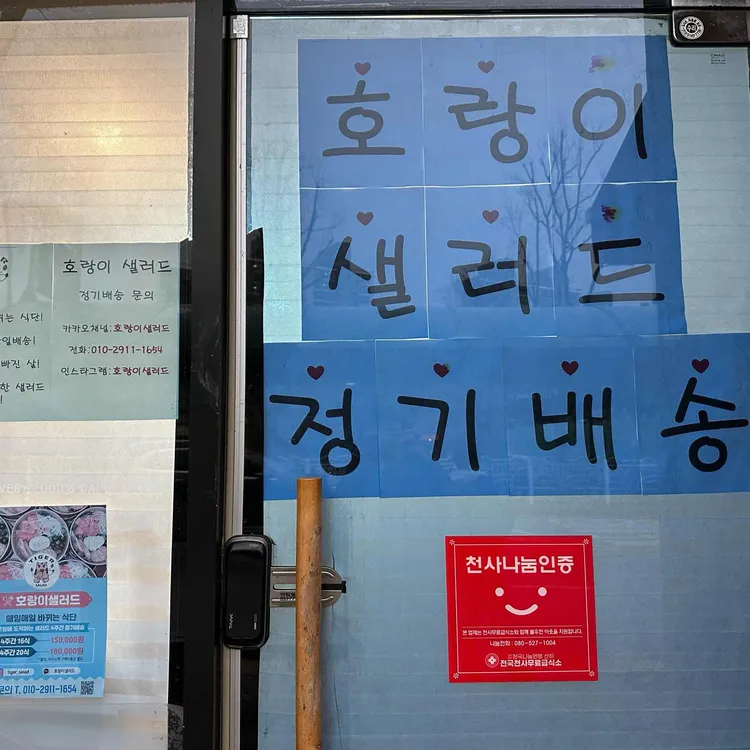 호랑이
샐러드
정기배송
호랑이 샐러드
정기배송 문의
카카오채널: 호랑이샐러드
전화: 010-2911-1654
인스타그램: 호랑이샐러드
는 식단!
일배송!
빠진 살!
한 샐러드
TIGER
호랑이샐러드
매일매일 바뀌는 식단
4주간 16식
150,000원
4주간 20식
180,000원
tiger_salad
호랑이샐러드
문의 T. 010-2911-1654
천사나눔인증
본 업체는 천사무료급식소와 함께 불우한 이웃을 지원합니다.
나눔전화 : 080-527-1004
전국천사무료급식소